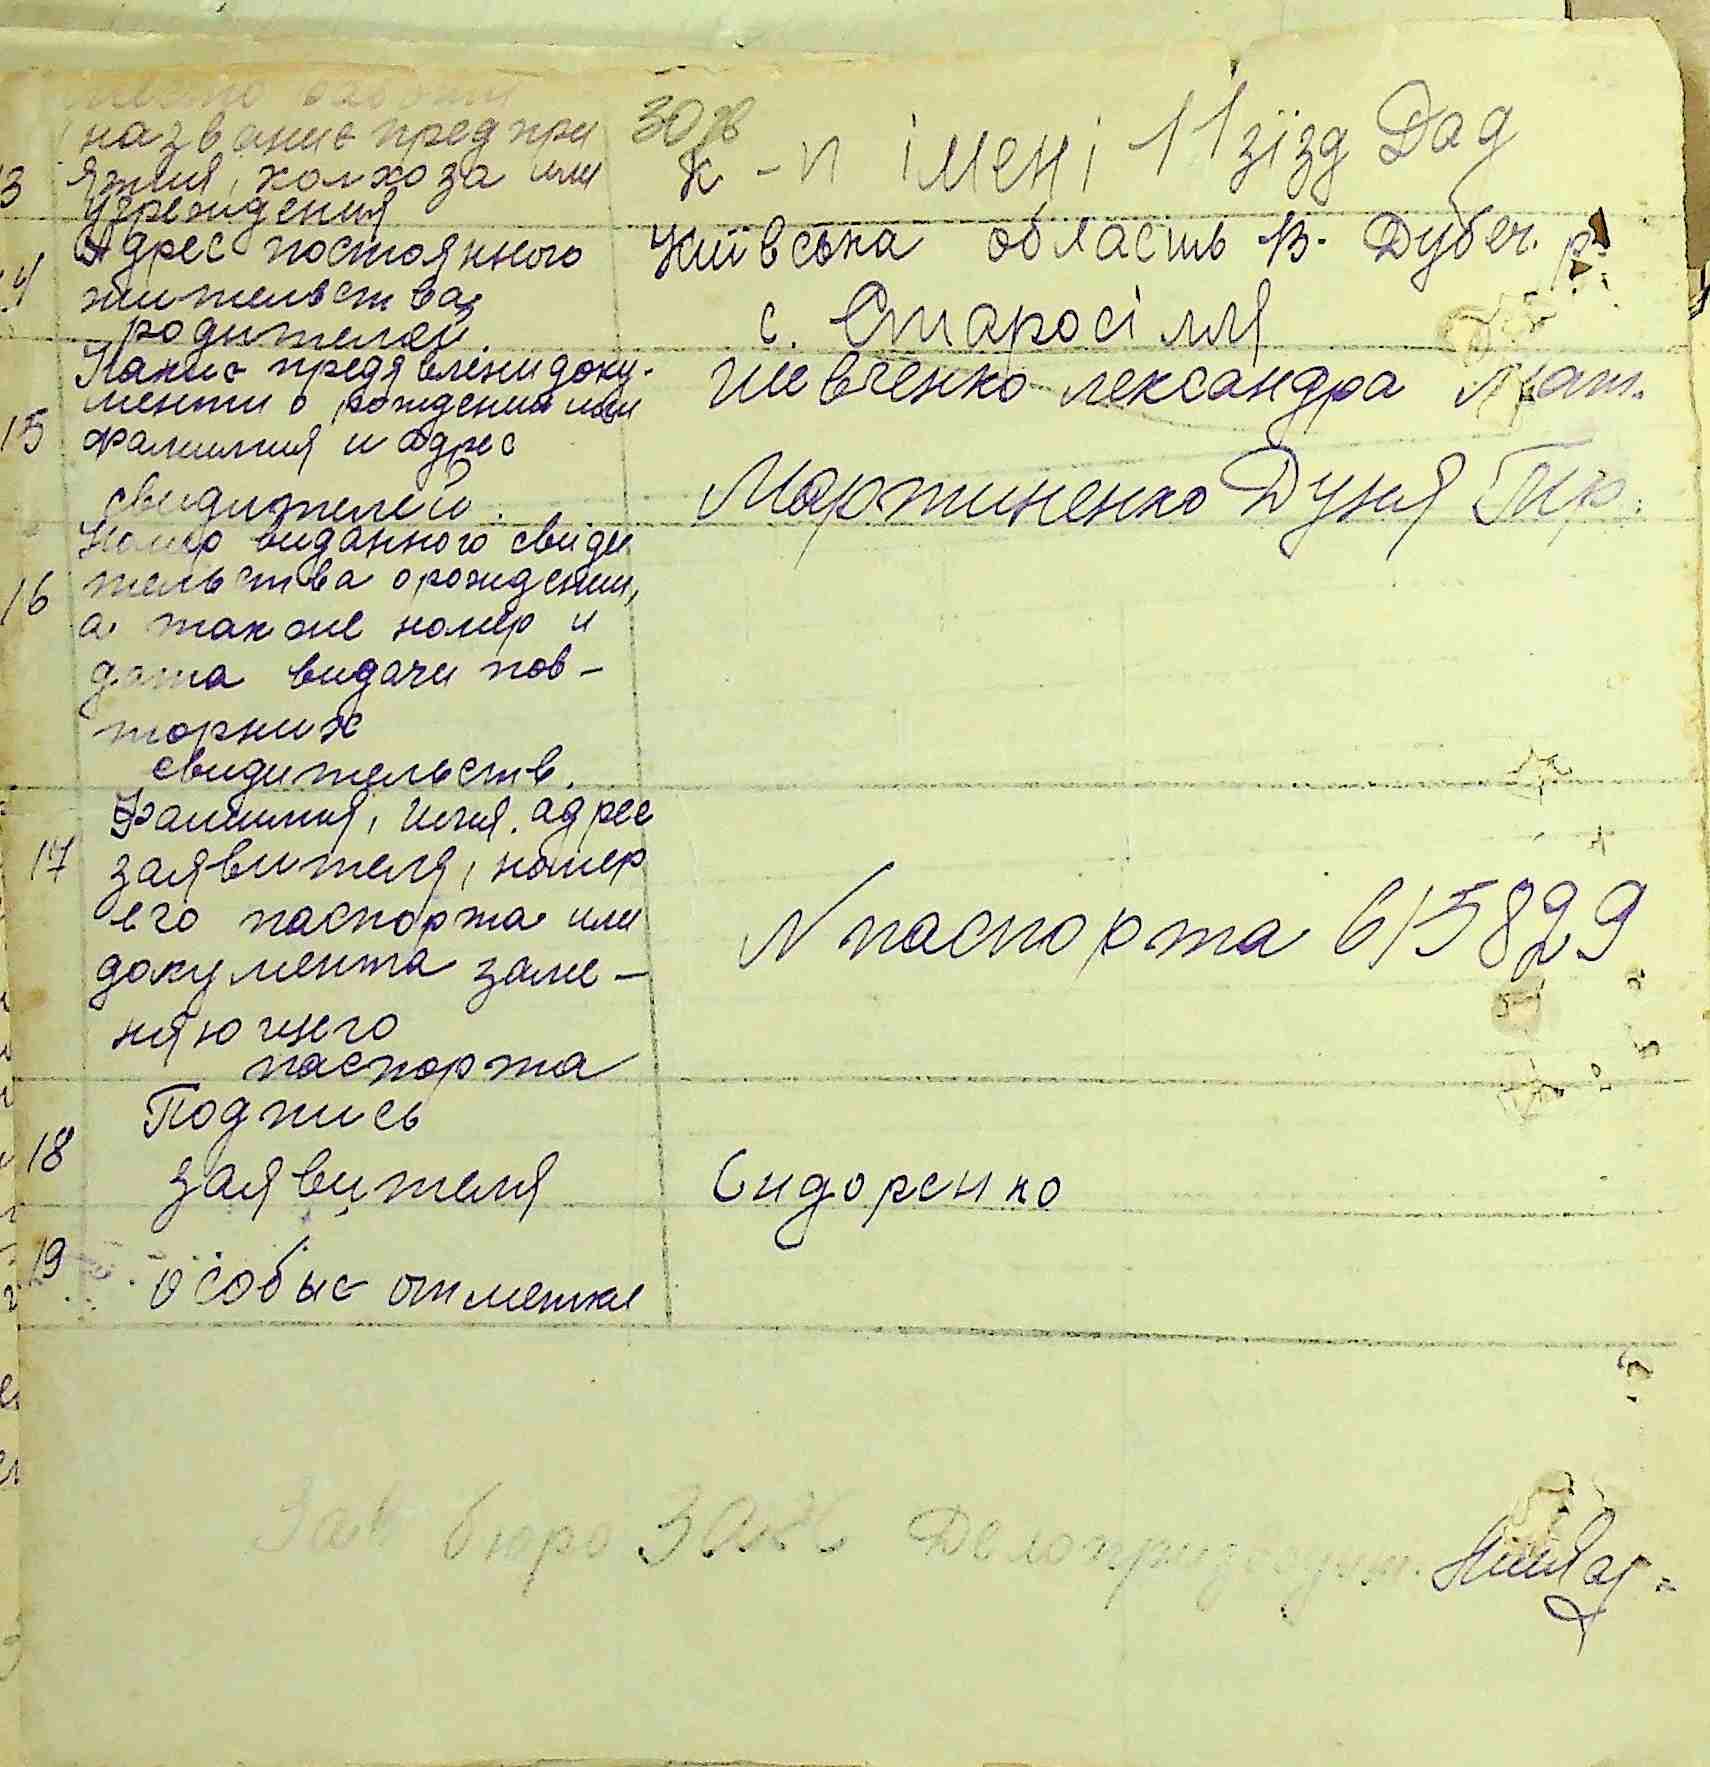 место работы
название предпри
13 ятия, колхоза или
учреждения
к-п імені 11 зїзд Рад
14 Адрес постоянного
жительства
родителей.
Київська область В. Дубеч. р.
с. Старосілля
Какие предявлени доку-
менти о рождении или
15 фамилия и адрес
свидителей.
Шевченко лександра
Мартиненко Дуня
Номер виданного свиди
16 тельства о рождении,
а также номер и
дата видачи пов-
торних
свидительств.
Фамилия, имя. адрес
17 заявителя, номер
его паспорта или
документа заме-
няющего
паспорта
N паспорта 615829
Подпись
18 заявителя
Сидоренко
19 особые отметки
Зав бюро ЗАГС